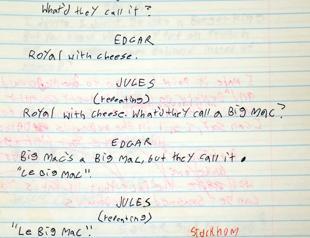 What'd they call it?
EDGAR
Royal with cheese.
JULES
(repeating)
Royal with cheese. What'd they call a Big Mac?
EDGAR
Big Mac's a Big Mac, but they call it
"Le Big Mac".
JULES
(repeating)
"Le Big Mac".
Stockhom